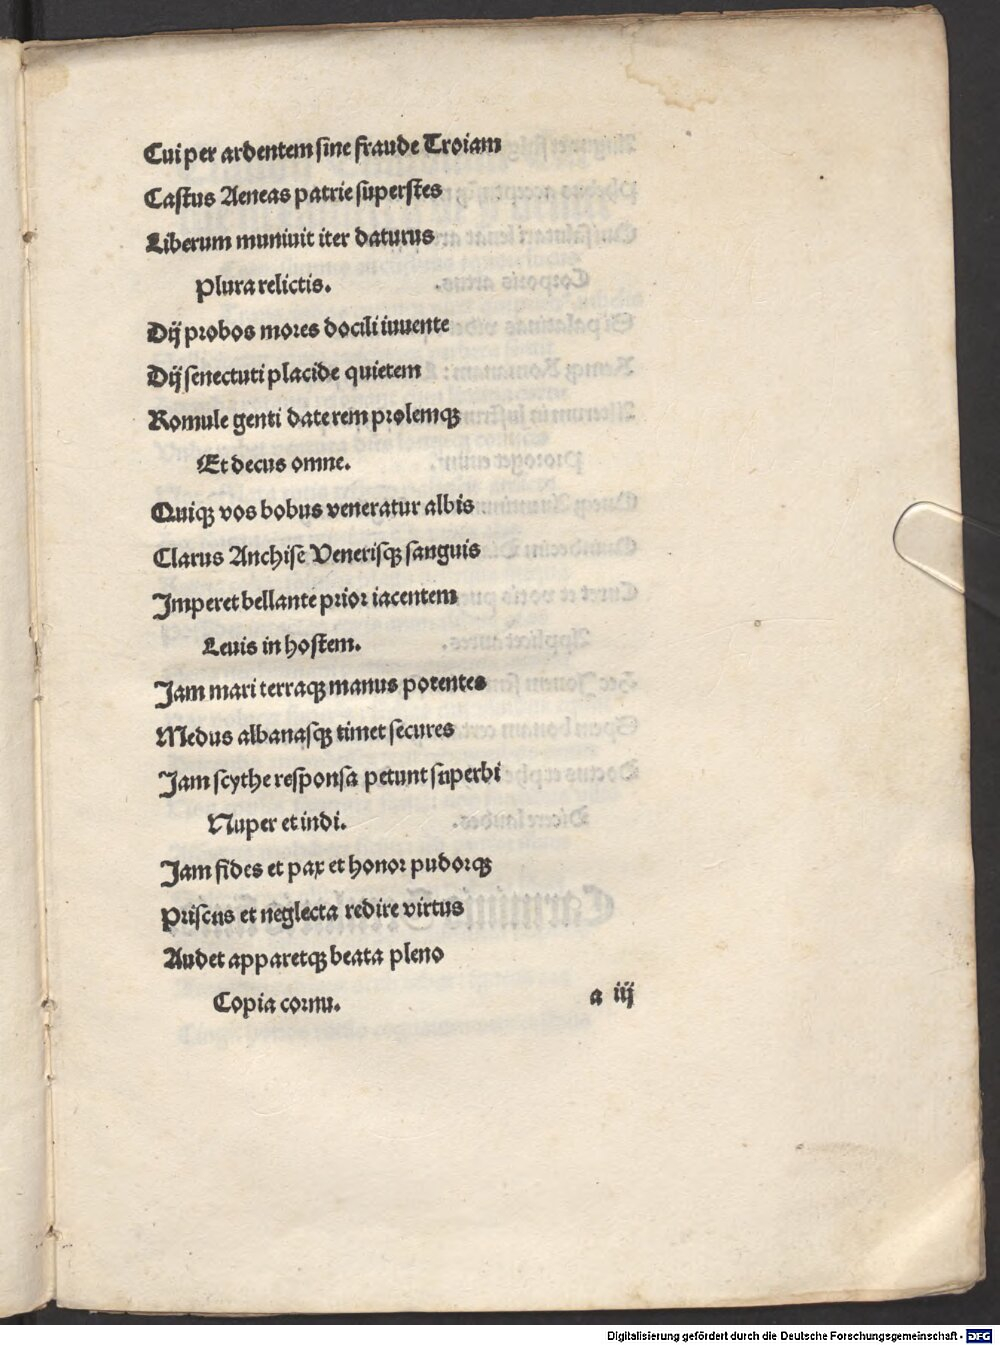 Cui per ardentem sine fraude Troiam
Castus Aeneas patrie superstes
Liberum muniuit iter daturus
Plura relictis.
Dij probos mores docili iuuente
Dij senectuti placide quietem
Romule genti date rem prolemqꝫ
Et decus omne.
Quiqꝫ vos bobus veneratur albis
Clarus Anchise Venerisqꝫ sanguis
Imperet bellante prior iacentem
Leuis in hostem.
Jam mari terraqꝫ manus potentes
Medus albanasqꝫ timet secures
Jam scythe responsa petunt superbi
Nuper et indi.
Jam fides et pax et honor pudorqꝫ
Priscus et neglecta redire virtus
Audet apparetqꝫ beata pleno
Copia cornu.
a iij
Digitalisierung gefördert durch die Deutsche Forschungsgemeinschaft - DFG